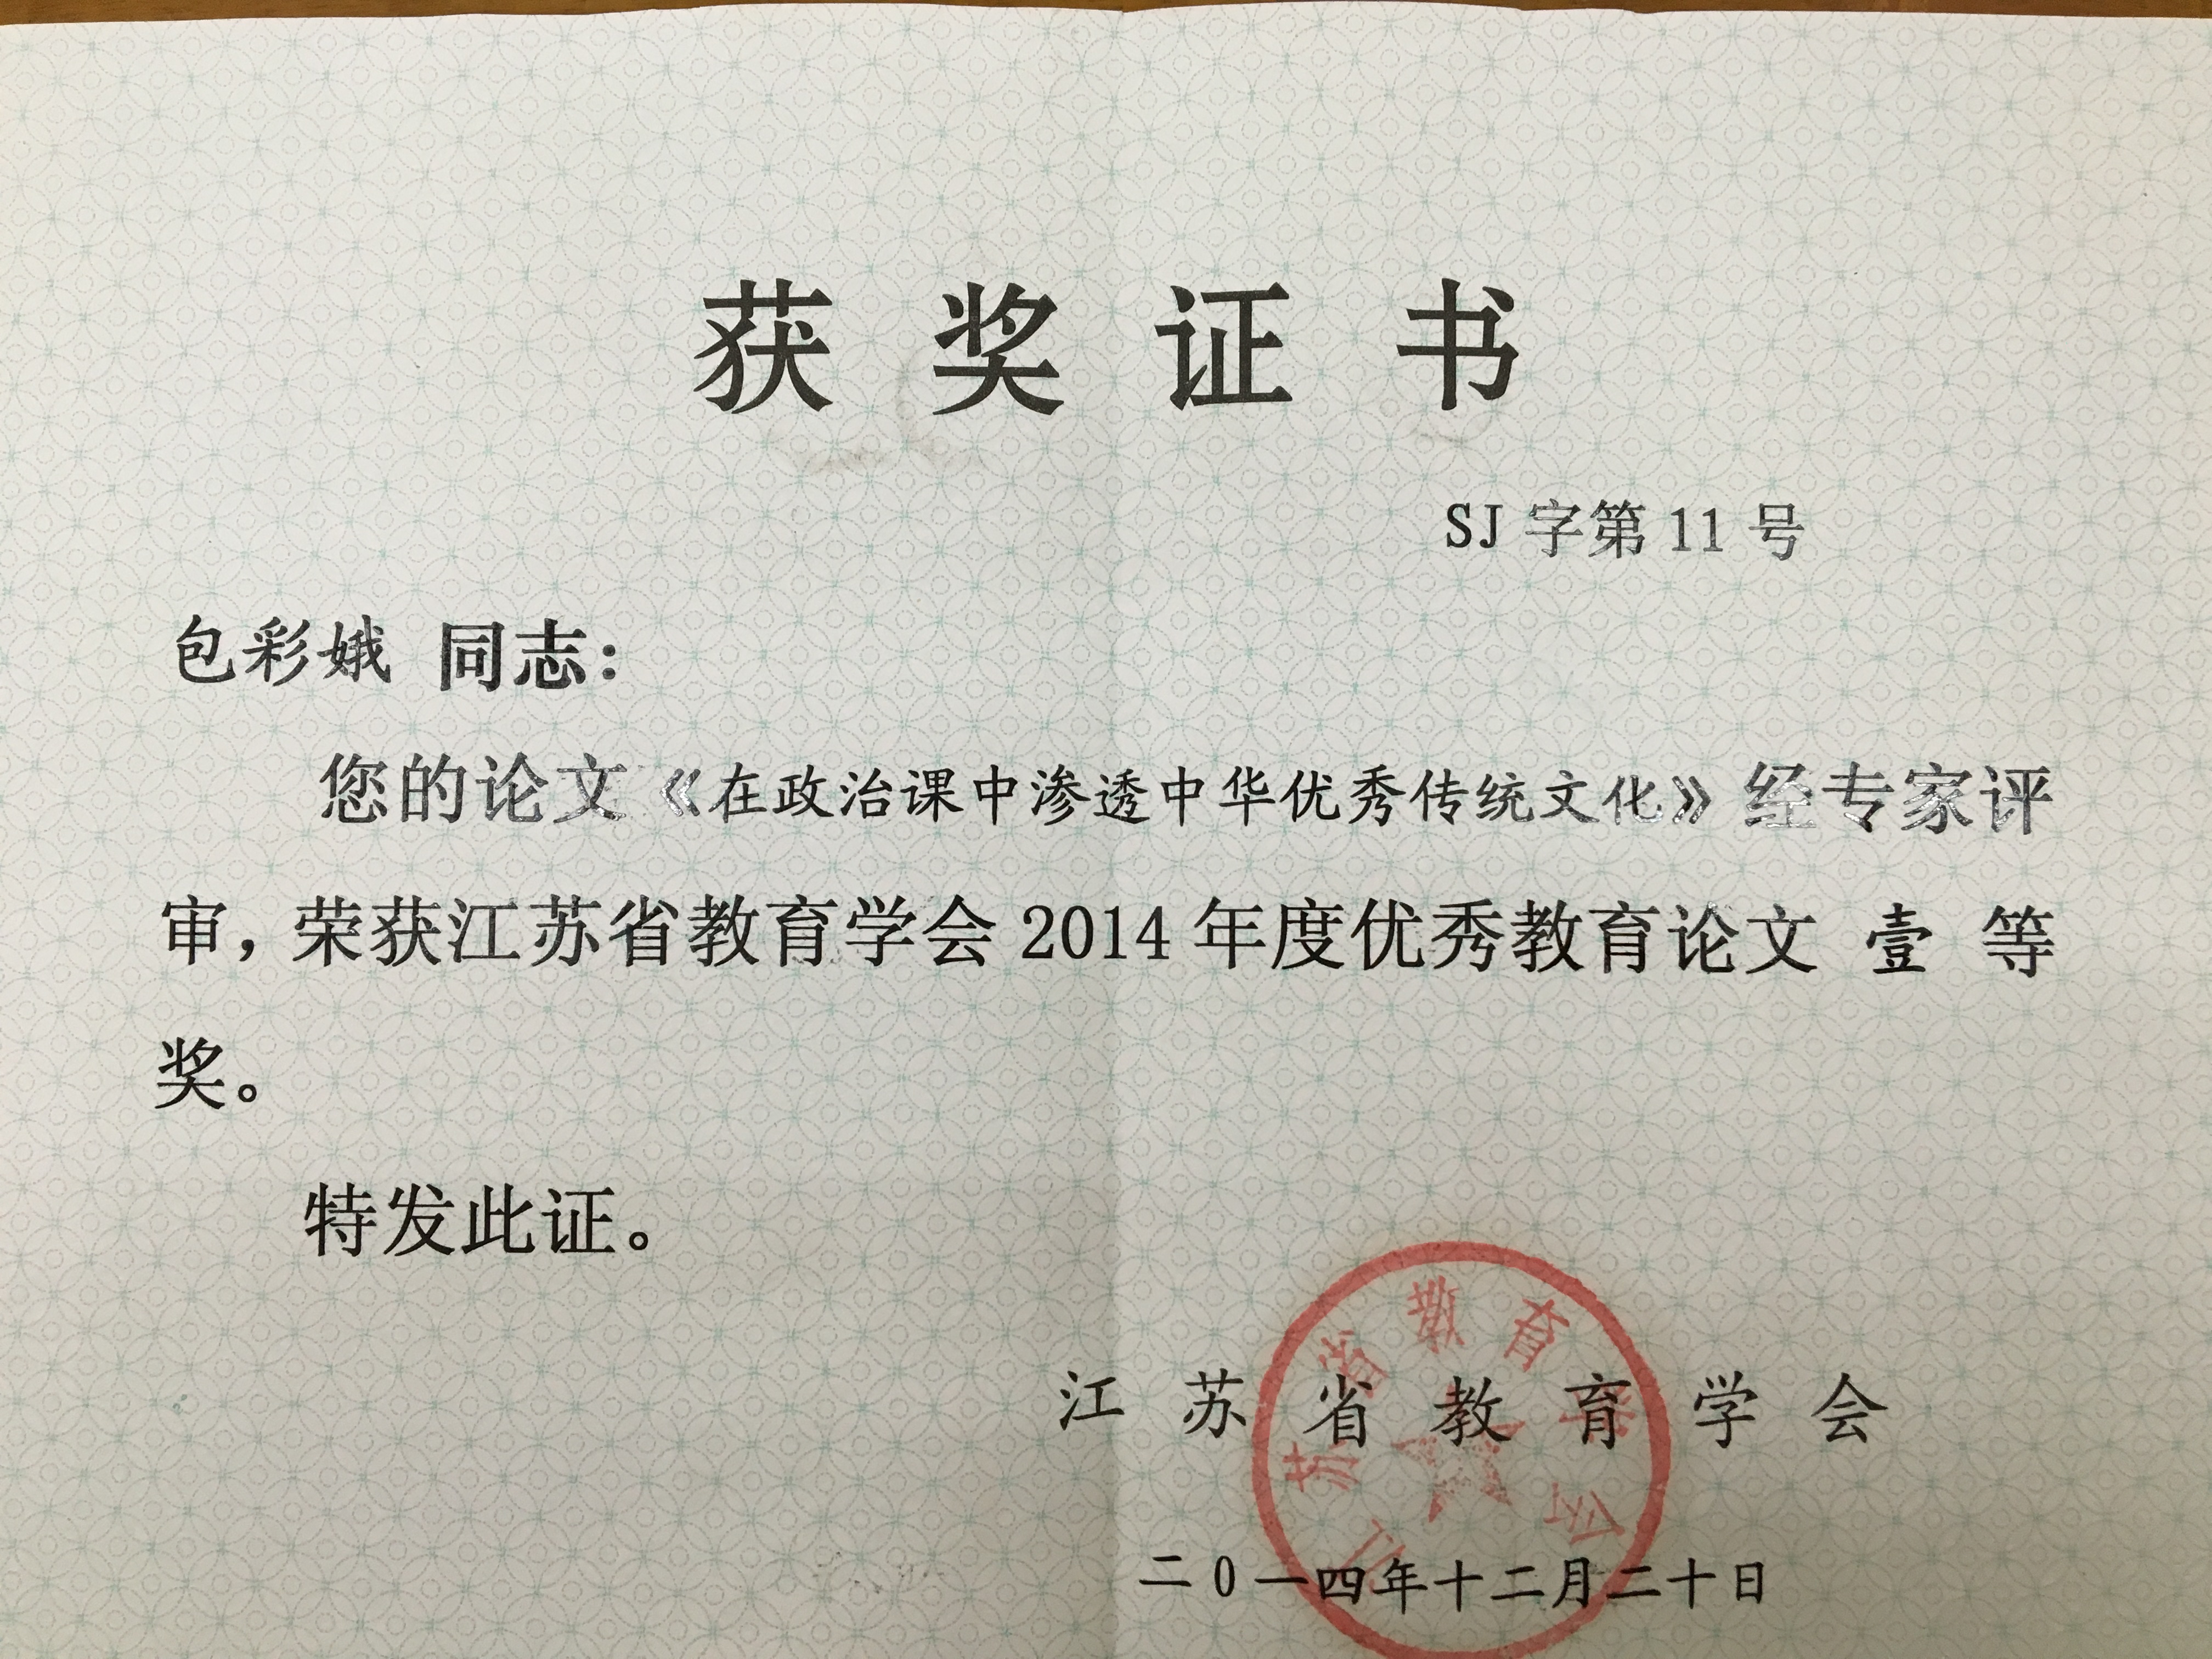 获奖证书
SJ 字第 11 号
包彩娥 同志：
您的论文《在政治课中渗透中华优秀传统文化》经专家评
审，荣获江苏省教育学会 2014 年度优秀教育论文 壹 等
奖。
特发此证。
江苏省教育学会
江苏省教育学会
二0一四年十二月二十日